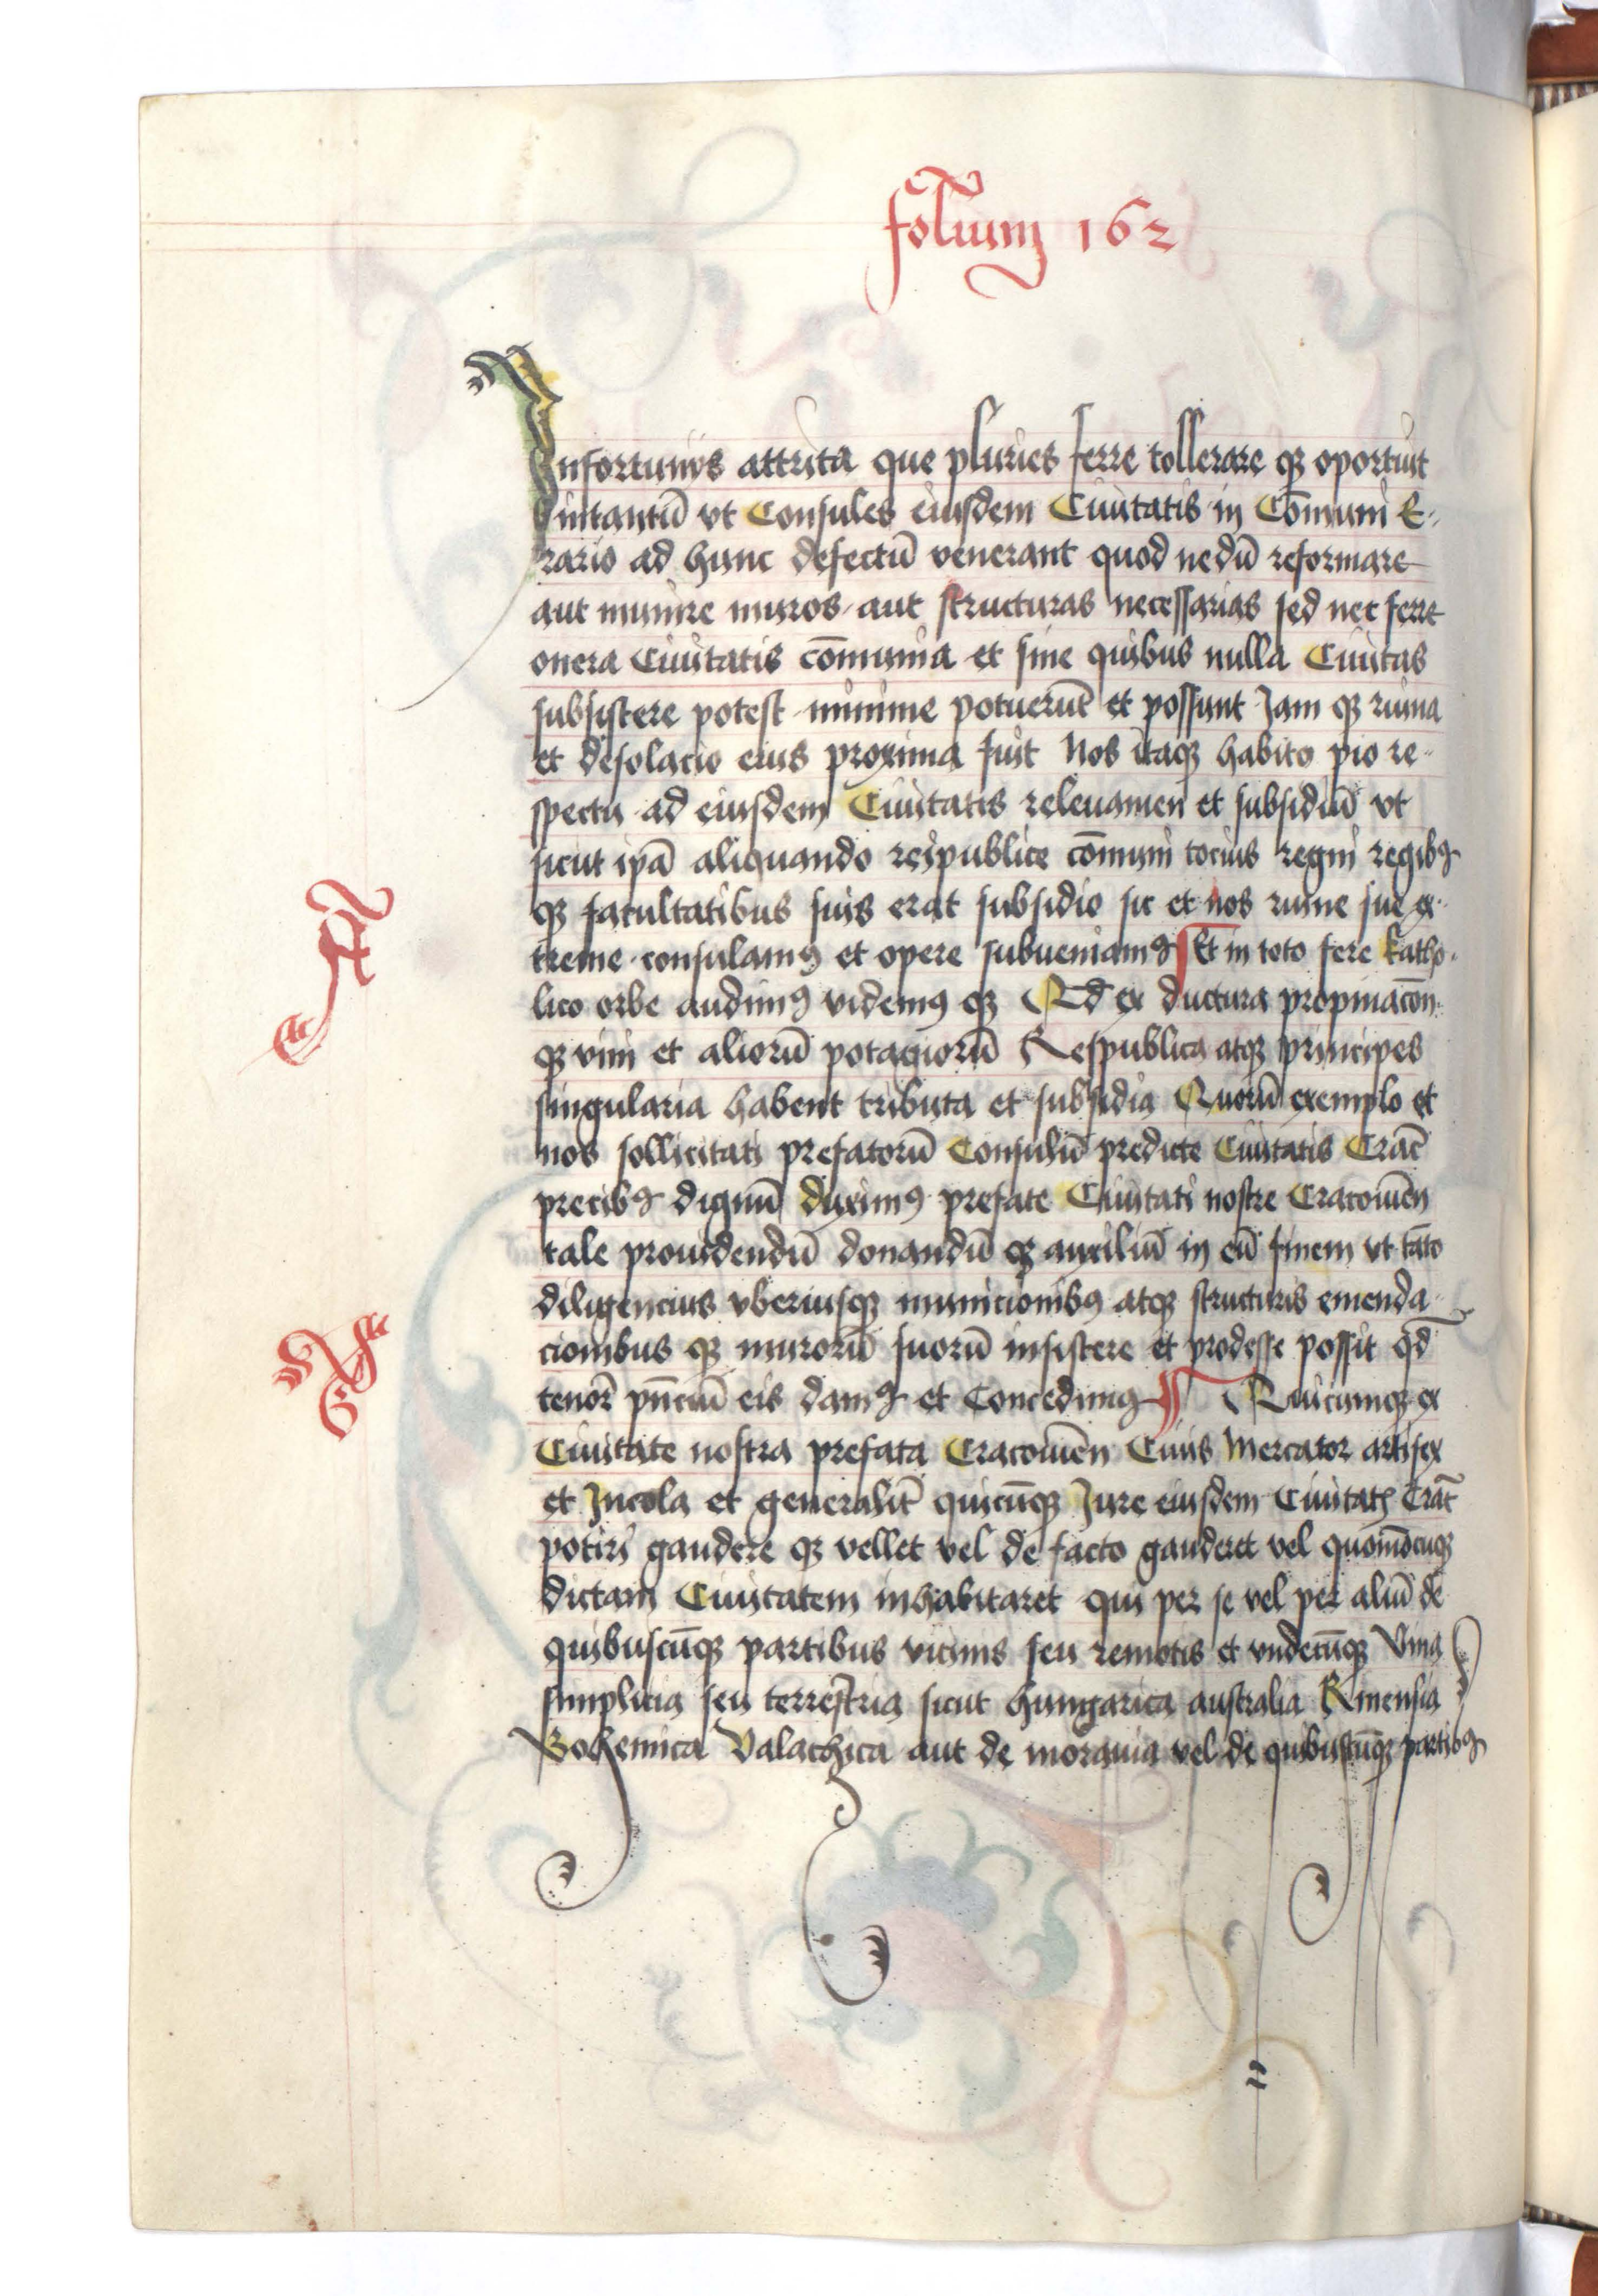 folium 162
Infortunijs attrita que pluries ferre tollerare qꝫ oportuit
intantū vt Consules eiusdem Ciuitatis in Cōmuni E-
rario ad hunc defectū venerant quod nedū reformare
aut munire muros aut structuras necessarias sed nec ferre
onera Ciuitatis cōmunia et sine quibus nulla Ciuitas
subsistere potest minime potuerūt et possunt Jam qꝫ ruina
et desolacio eius proxima fuit Nos itaqꝫ habito pio re-
spectu ad eiusdem Ciuitatis releuamen et subsidiū vt
sicut ip̄a aliquando reipublice cōmuni tocius regni regibꝰ
qꝫ facultatibus suis erat subsidio sic et nos ruine sue ex-
treme consulamꝰ et opere subueniamꝰ Et in toto fere katho-
lico orbe audimꝰ videmꝰ qꝫ Qd̄ ex ductura propinacōn
qꝫ vini et aliorū potagiorū Respublica atqꝫ principes
singularia habent tributa et subsidia Quorū exemplo et
nos sollicitati prefatorū Consulū predicte Ciuitatis Crac̄
precibꝰ dignū duximꝰ prefate Ciuitati nostre Cracouien̄
tale prouidendū donandū qꝫ auxiliū in eū finem vt tāto
diligencius vberiusqꝫ municionibꝰ atqꝫ structuris emenda-
cionibus qꝫ murorū suorū insistere et prodesse possit qd̄
tenor̄ pn̄ciū eis damꝰ et Concedimꝰ Quicumqꝫ ex
Ciuitate nostra prefata Cracouien̄ Ciuis Mercator artifex
et Jncola et generalit̄ quicūqꝫ Jure eiusdem Ciuitatꝭ Crac̄
potiri gaudere qꝫ vellet vel de facto gauderet vel quomōcūqꝫ
dictam Ciuitatem inhabitaret qui per se vel per aliū de
quibuscūqꝫ partibus vicinis seu remotis et vndecūqꝫ Vina
simplicia seu terrestria sicut hungarica australia Rinensia
Bohemica Valachica aut de morauia vel de quibuscūqꝫ partibꝰ